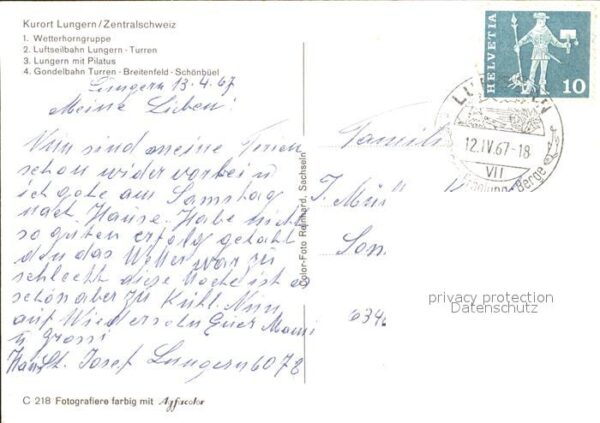 Kurort Lungern/Zentralschweiz
1. Wetterhorngruppe
2. Luftseilbahn Lungern - Turren
3. Lungern mit Pilatus
4. Gondelbahn Turren - Breitenfeld - Schönbüel
Lungern 13.4.67
Meine Lieben!
Nun sind meine Ferien
schon wider vorbei
ich gehe am Samstag
nach Hause. Habe nicht
so guten erfolg gehabt
den das Wetter war zu
schlecht diese Woche ist es
schön aber zu Kühl. Nun
auf Wiedersehn Euer Mami
u grossi
St. Josef Lungern 6078
C 218 Fotografiere farbig mit Agfacolor
Color-Foto Reinhard, Sachseln
HELVETIA
10
12.IV.67-18
VII
Berge
Famili
J. Mül
privacy protection
Datenschutz